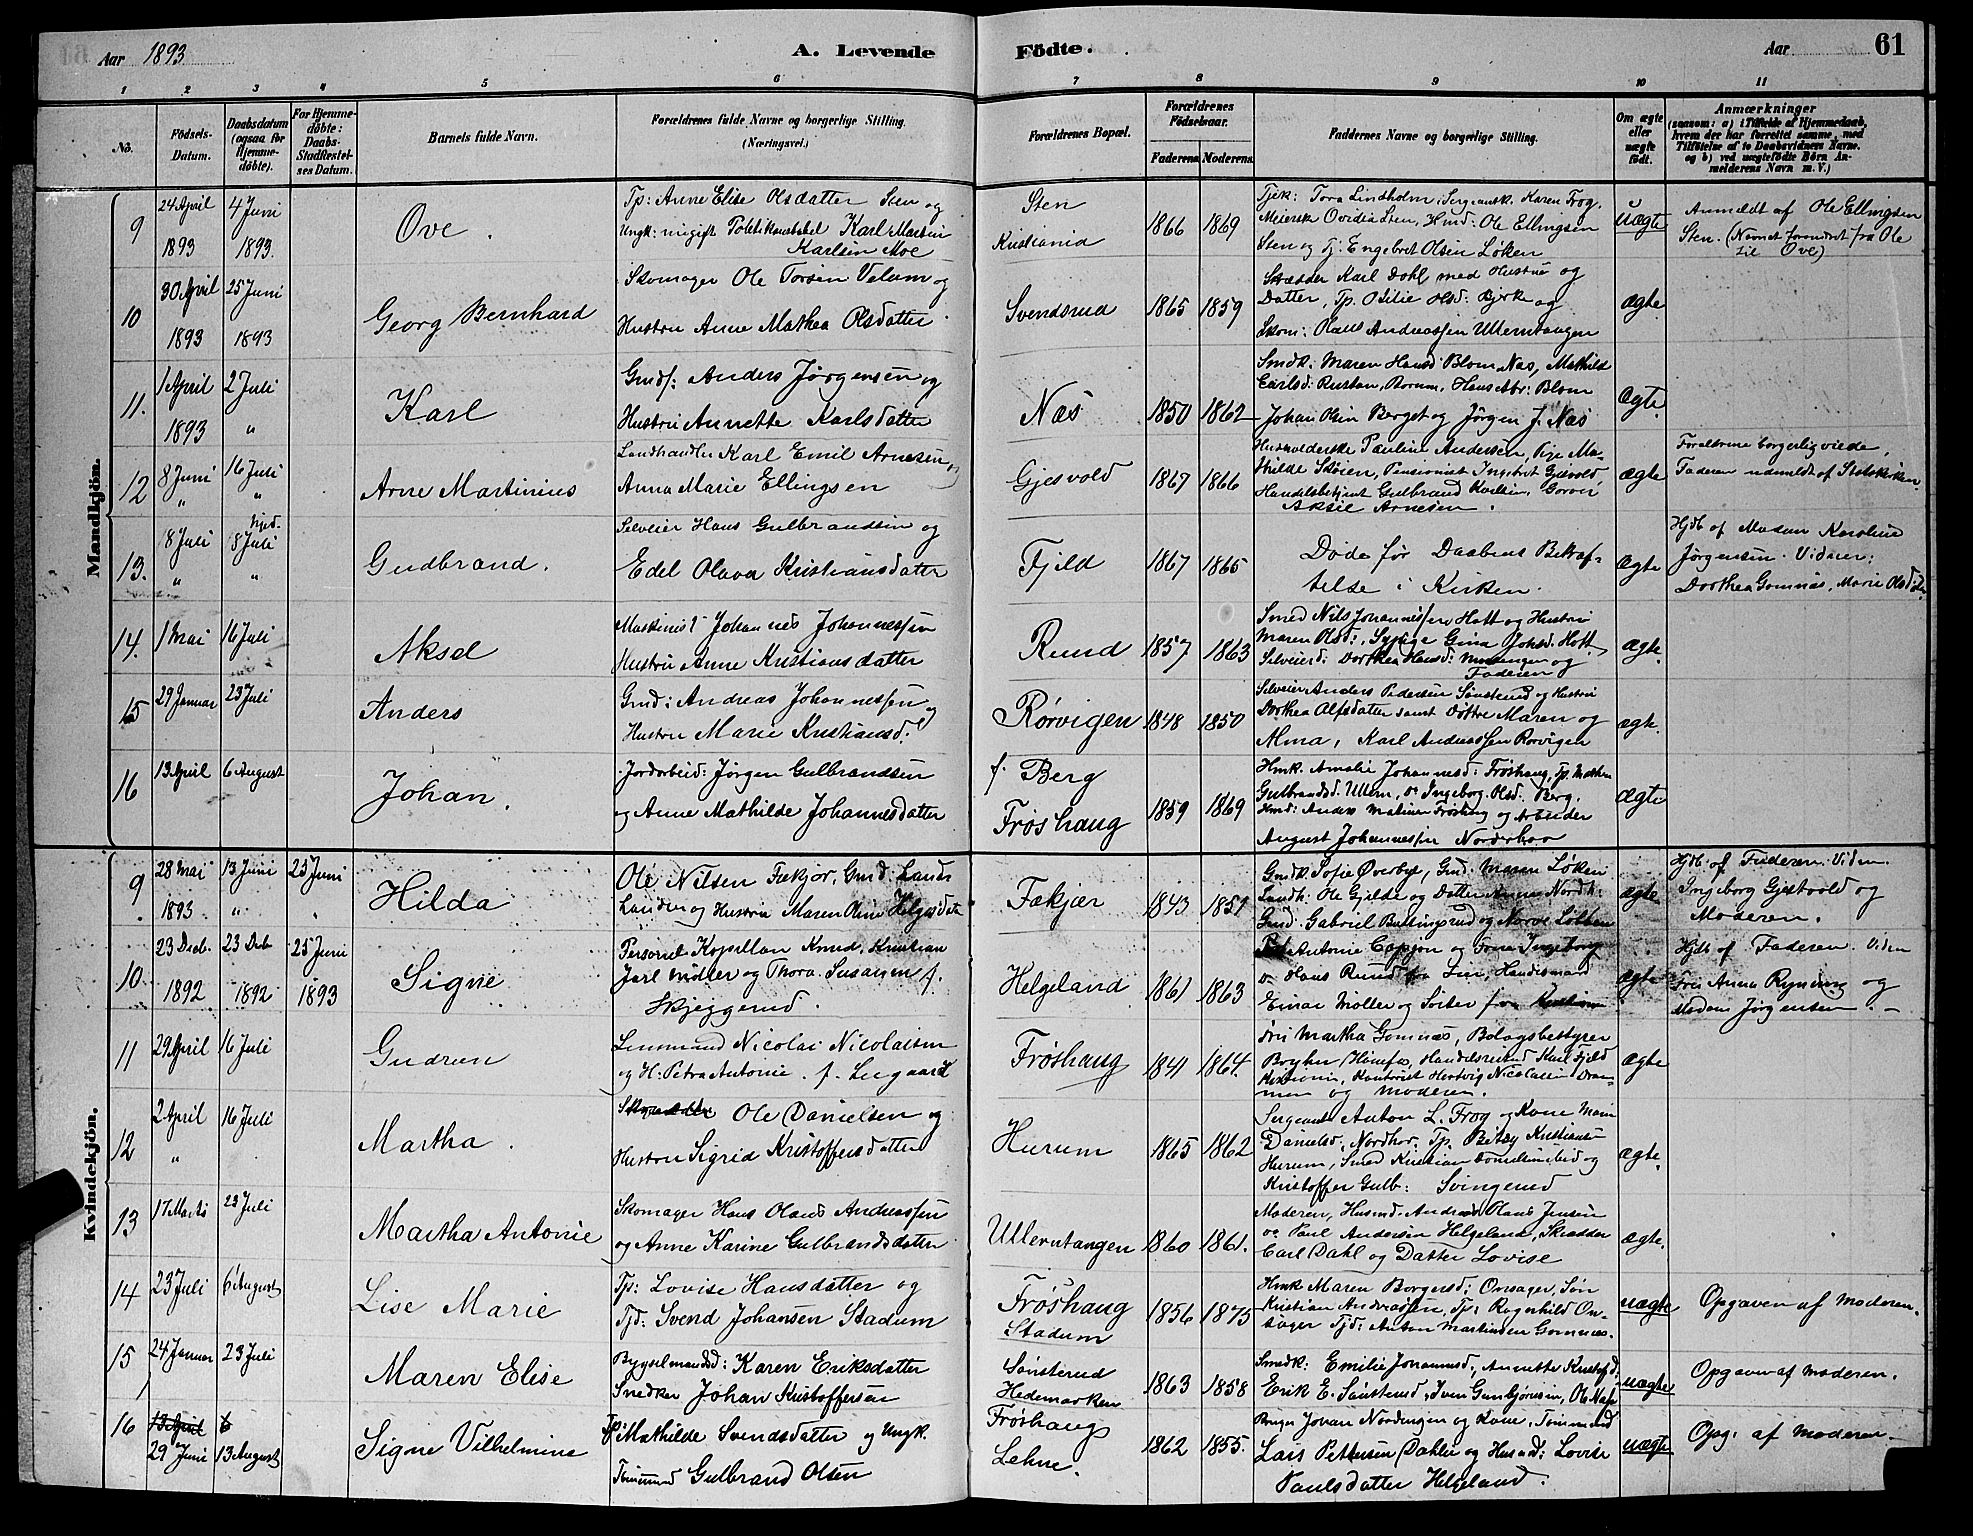 61
Aar 1893
A. Levende Födte.
Aar
1 2 3 4 5 6 7 8 9 10 11
No.
Födsels-Datum.
Daabsdatum (ogsaa for Hjemme-döbte).
For Hjemme-döbte: Daabs-Stadfæstel-ses Datum.
Barnets fulde Navn.
Forældrenes fulde Navne og borgerlige Stilling. (Næringsvei.)
Forældrenes Bopæl.
Forældrenes Födselsaar.
Faderens. Moderens.
Faddernes Navne og borgerlige Stilling.
Om ægte eller uægte födt.
Anmærkninger
(saasom: a) i Tilfælde af Hjemmedaab, hvem der har forrettet samme, med Tilföielse af to Daabsvidners Navne. og b) ved uægtefödte Börn An-melderens Navn m. V.)
Mandkjön.
9 24 April 1893 4 Juni 1893. Ove.
Tp: Anne Elise Olsdatter Sten og
Ungk: Karl Martin
Karlsen Moe
Sten
Kristiania
1866 1869
Tjek: Tora Lindholm, Sergeantsk. Karen Frog,
Meiersk Ovidia Sten, Hmd: Ole Ellingsen
Sten og Tj: Engebret Olsen Löken
uægte
Anmeldt af Ole Ellingsen
Sten. (Navnet forandret fra Ole
til Ove)
10 30 April 1893 25 Juni 1893 Georg Bernhard
Skomager Ole Torsen Velum og
Hustru Anne Mathea Olsdatter
Svendsrud 1865 1859
Skrædder Karl Dahl med Hustru og
Datter, Tp. Otilie Olsd: Bjerke og
Skom: Olaus Andreassen Ullerntangen
ægte
11. 1 April 1893 2 Juli " Karl
Gmdf: Anders Jörgensen og
Hustru Annette Karlsdatter
Næs 1850 1862
Smdk: Maren Hansd: Blom Næs, Mathilde
Carlsd: Rustan, Rorum, Hans Abr: Blom
Johan Olsen Berget og Jörgen J. Næs
ægte.
12 8 Juni " 16 Juli " Arne Martinius
Landhandler Karl Emil Arnesen og
Anna Marie Ellingsen
Gjesvold 1867 1866
Husholderske Pauline Andersen, Pige Ma-
thilde Skoien, Pensionist Ingebret Gjesvold
Handelsbetjent Gulbrand Karlsen,
Aksel Arnesen.
ægte
Forældrene borgerlig viede,
Faderen udmeldt af Statskirken.
13. 8 Juli " Hjed. 8 Juli " Gudbrand.
Selveier Hans Gulbrandsen og
Edel Olava Kristiansdatter
Fjeld 1867 1865
Döde för Daabens Bekræf-
telse i Kirken.
ægte
Hjdb af Madam Karoline
Jörgensen. Vidner:
Dorthea Gomnæs, Marie Olsdatter
14. 1 Mai 16 Juli Aksel
Maskinist Johannes Johannessen
Hustru Anne Kristiansdatter
Rund 1857 1863
Smed Nils Johannessen Hott og Hustru
Maren Olsd:, Sypige Gina Johsd. Hott
Selveierd: Dorthea Hansd: og
Faderen
ægte.
15 29 Januar 23 Juli Anders
Gmd: Andreas Johannessen og
Hustru Marie Kristiansd.
Rörvigen 1848 1850
Selveier Anders Pedersen Sönsterud og Hustru
Dorthea Alfsdatter samt Döttre Maren og
Alma, Karl Andreassen Rörvigen
ægte.
16 13 April 6 August Johan.
Jordarbeid: Jörgen Gulbrandsen
og Anne Mathilde Johannesdatter
f. Berg
Fröshaug
1859 1869
Hmk. Amalie Johannesd: Fröshaug, Tp. Mathea
Gulbrandsd. Ullern, do Ingeborg Olsd. Berg,
Hmd: Anders Mathisen Fröshaug og Arbeider
August Johannessen Norderhov
ægte
Kvindekjön.
9 28 Mai 1893 13 Juni " 25 Juni Hilda
Ole Nilsen Fækjær, Gmd. Lands
og Hustru Maren Oline Helgesdatter
Fækjær 1843 1851
Gmdk. Sofie Överby, Gmd. Maren Löken
Landh: Ole Gjelde og Datter Anna Nordh:
Gmd: Gabriel og Norve Lökken
ægte
Hjdb af Faderen. Vidn.
Ingeborg Gjesvold og
Moderen.
10. 23 Decb. 1892 23 Deb 1892 25 Juni 1893 Signe
Personel Kapellan Knud Kristian
Jarl Möller og Thora Susanne f.
Skjeggerud.
Helgeland 1861 1863
Antonie Cappön og Frue Ingeborg
v. Hans Rund fra Handelsmand
Einar Möller og Söster fra Kristiania
ægte
Hjdb af Faderen. Vidn
Frk Anna Ryning og
Madam Jörgensen. -
11 29 April 16 Juli Gudrun
Lensmand Nicolai Nicolaisen
og H: Petra Antonie f. Lugaard
Fröshaug 1841 1864.
Frk Martha Gomnæs, Bolagsbestyrer
Böyhn Hönefos, Handelsreisend Karl Fjeld
Kristiania, Kontorist Hertvig Nicolaisen Dram-
men og Moderen.
ægte
12 2 April " 16 Juli Martha.
Skrædder Ole Danielsen og
Hustru Sigrid Kristoffersdatter
Hurum 1865 1862
Sergeant Anton L. Frog og Kone Maren
Danielsd: Nordhov. Tp. Betzy Kristiansen
Hurum, Smed Kristian og
Kristoffer Gulb: Svingerud
ægte.
13 17 Marts 23 Juli Martha Antonie
Skomager Hans Olaus Andreassen
og Anne Karine Gulbrandsdatter
Ullerntangen 1860 1861.
Moderen, Husmd. Andreas Olaus Jensen
og Paul Andersen Helgeland, Skrædder
Carl Dahl og Datter Lovise
ægte.
14 23 Juli 6 August Lise Marie
Tp: Lovise Hansdatter og
Tjd: Svend Johansen Stadum
Fröshaug
Stadum
1856 1875
Hmk Maren Borgersd: Onsager, Sön
Kristian Andreassen, Tp: Ragnhild On-
sager Tjd: Anton Martinsen Gomnæs.
uægte
Opgaven af Moderen.
15 24 Januar 23 Juli Maren Elise
Bygselmandsd: Karen Eriksdatter
Snedker Johan Kristoffersen
Sönsterud
Hedemarken
1863 1858
Smedk: Emilie Johannesd, Annette Kristofd.
Erik E. Sönsterud, Iver Gunbjörnsen, Ole Næs
uægte
Opgaven af Moderen.
16 13 April 6
29 Juni 13 August Signe Vilhelmine
Tp: Mathilde Svendsdatter og Ungk.
Tömmermd Gulbrand Olsen
Fröshaug
Lehne.
1862 1855.
Bruger Johan Nordengen og Kone, Tömmermd
Lars Pettersen Dahlen og Husmd: Lovise
Paulsdatter Helgeland.
uægte
Opg: af Moderen.